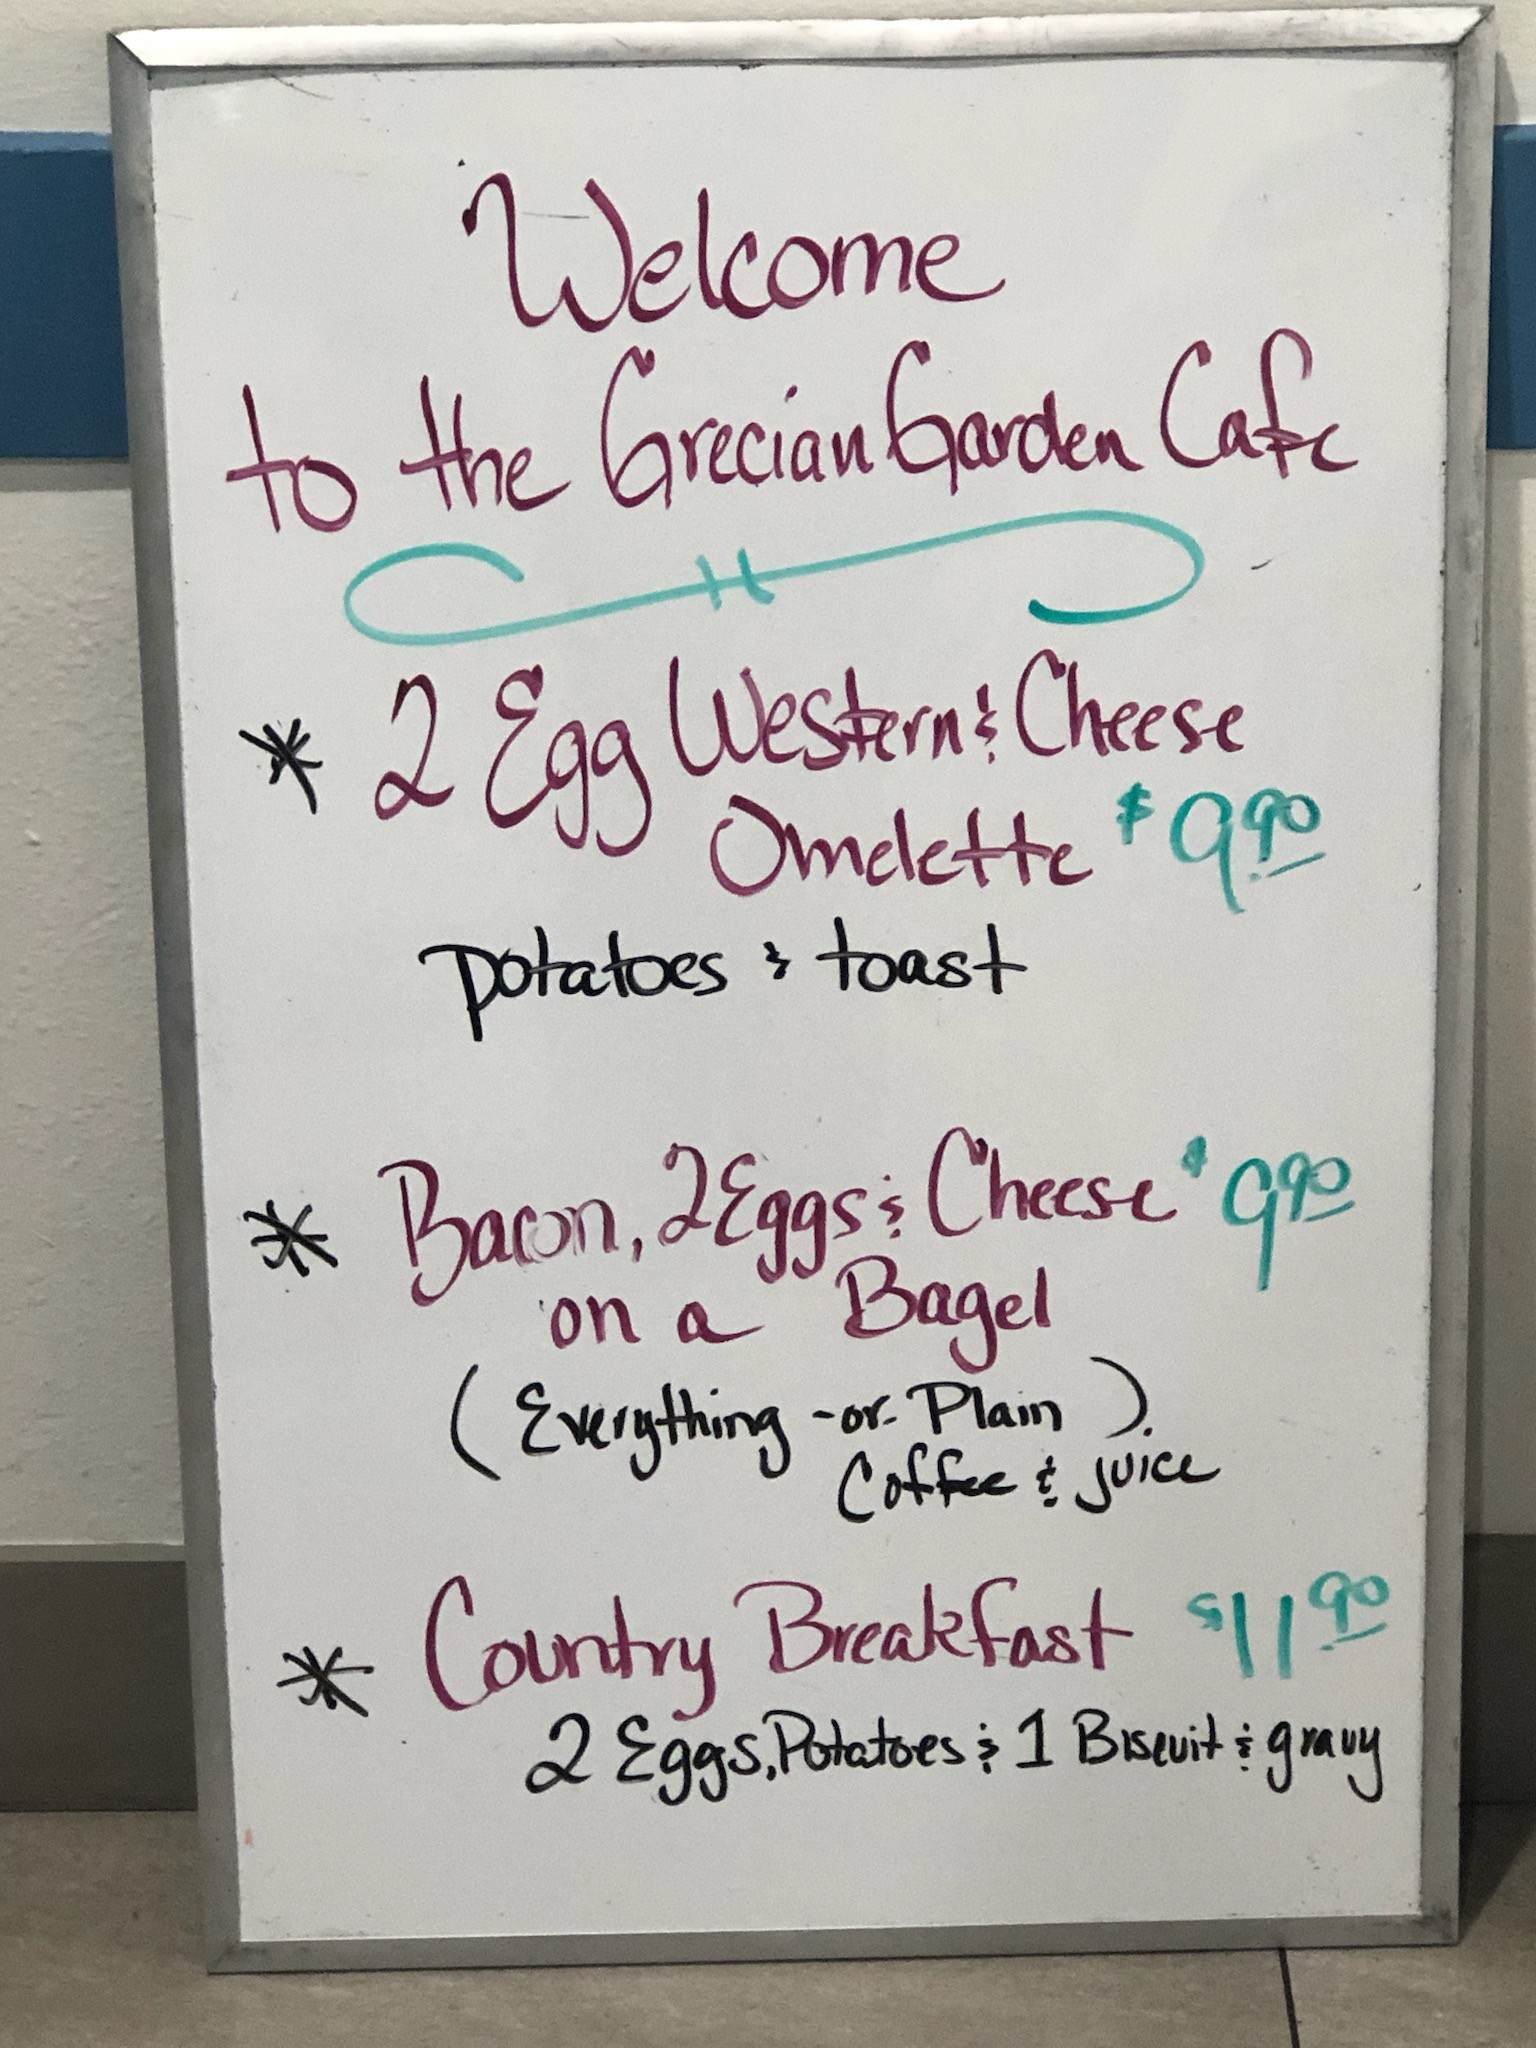 Welcome
to the Grecian Garden Cafe
* 2 Egg Western & Cheese
Omelette $9.90
potatoes & toast
* Bacon, 2 Eggs & Cheese $9.90
on a Bagel
(Everything -or- Plain).
Coffee & juice
* Country Breakfast $11.90
2 Eggs, Potatoes & 1 Biscuit & gravy